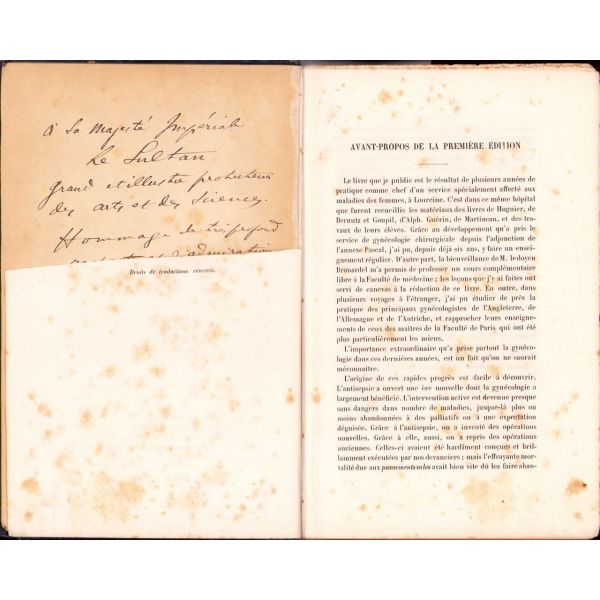 à Sa Majesté Impériale
Le Sultan
grand et illustre protecteur
des arts et des Sciences.
Hommage de très profond
et d'admiration
Droits de traductions réservés.
AVANT-PROPOS DE LA PREMIÈRE ÉDITION
Le livre que je publie est le résultat de plusieurs années de
pratique comme chef d'un service spécialement affecté aux
maladies des femmes, à Lourcine. C'est dans ce même hôpital
que furent recueillis les matériaux des livres de Huguier, de
Bernutz et Goupil, d'Alph. Guérin, de Martineau, et des tra-
vaux de leurs élèves. Grâce au développement qu'a pris
le service de gynécologie chirurgicale depuis l'adjonction de
l'annexe Pascal, j'ai pu, depuis déjà six ans, y faire un ensei-
gnement régulier. D'autre part, la bienveillance de M. le doyen
Brouardel m'a permis de professer un cours complémentaire
libre à la Faculté de médecine ; les leçons que j'y ai faites ont
servi de canevas à la rédaction de ce livre. En outre, dans
plusieurs voyages à l'étranger, j'ai pu étudier de près la
pratique des principaux gynécologistes de l'Angleterre, de
l'Allemagne et de l'Autriche, et rapprocher leurs enseigne-
ments de ceux des maîtres de la Faculté de Paris qui ont été
plus particulièrement les miens.
L'importance extraordinaire qu'a prise partout la gynéco-
logie dans ces dernières années, est un fait qu'on ne saurait
méconnaître.
L'origine de ces rapides progrès est facile à découvrir.
L'antisepsie a ouvert une ère nouvelle dont la gynécologie a
largement bénéficié. L'intervention active est devenue presque
sans dangers dans nombre de maladies, jusque-là plus ou
moins abandonnées à des palliatifs ou à une expectation
déguisée. Grâce à l'antisepsie, on a inventé des opérations
nouvelles. Grâce à elle, aussi, on a repris des opérations
anciennes. Celles-ci avaient été hardiment conçues et bril-
lamment exécutées par nos devanciers ; mais l'effrayante mor-
talité due aux pansements sales avait bien vite dû les faire aban-